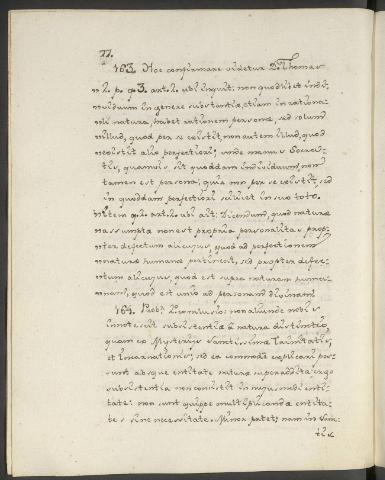 77.
163. Hoc confirmare videtur D. Thomas
3. p. q. 2. art. 2. ubi inquit: non quodlibet indi,
viduum in genere substantiæ, etiam in rationa,
li natura, habet rationem personæ, sed solum
illud, quod per se existit, non autem illud, quod
existit in alio perfectiori; unde manus Socra,
tis, quamvis sit quoddam individuum, non
tamen est persona, quia non per se existit, sed
in quodam perfectiori scilicet in suo toto.
Item q. art. 2. ubi ait: Dicendum, quod naturæ
assumptæ non est propria personalitas prop,
ter defectum alicujus, quod ad perfectionem
naturæ humanæ pertineat, sed propter defec,
tum alicujus, quod est supra naturam huma,
nam, quod est unio ad personam divinam
164. Prob. 2. conclusio: non aliunde nobis
innotescit subsistentiæ a natura distinctio,
quam ex Mysteriis Sanctissimæ Trinitatis,
et Incarnationis; sed ea commode explicari pos,
sunt absque entitate naturæ superaddita: ergo
subsistentia non consistit in hujusmodi enti,
tate: non sunt quippe multiplicandæ entita,
tes sine necessitate. Minor patet; nam in San,
tis,